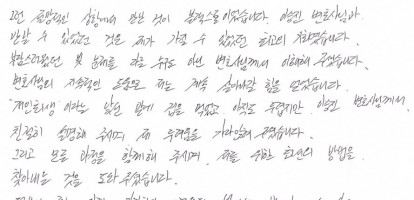 그런 절망적인 상황에서 만난 것이 이승진 변호사님과
만날 수 있었던 것은 제가 가질 수 있었던 최고의 기회였습니다.
못 문제를 다른 누구도 아닌 변호사님께서 이해해 주셨습니다.
변호사님의 지속적인 도움으로 저는 계속 살아나갈 힘을 얻었습니다.
"개인회생"이라는 낯선 말에 겁을 먹었고 아직도 두렵지만, 변호사님께서
친절히 설명해 주시며 제 두려움을 가라앉혀 주셨습니다.
그리고 모든 과정을 함께해 주시며, 저를 위한 최선의 방법을
찾아내는 것을 도와주셨습니다.